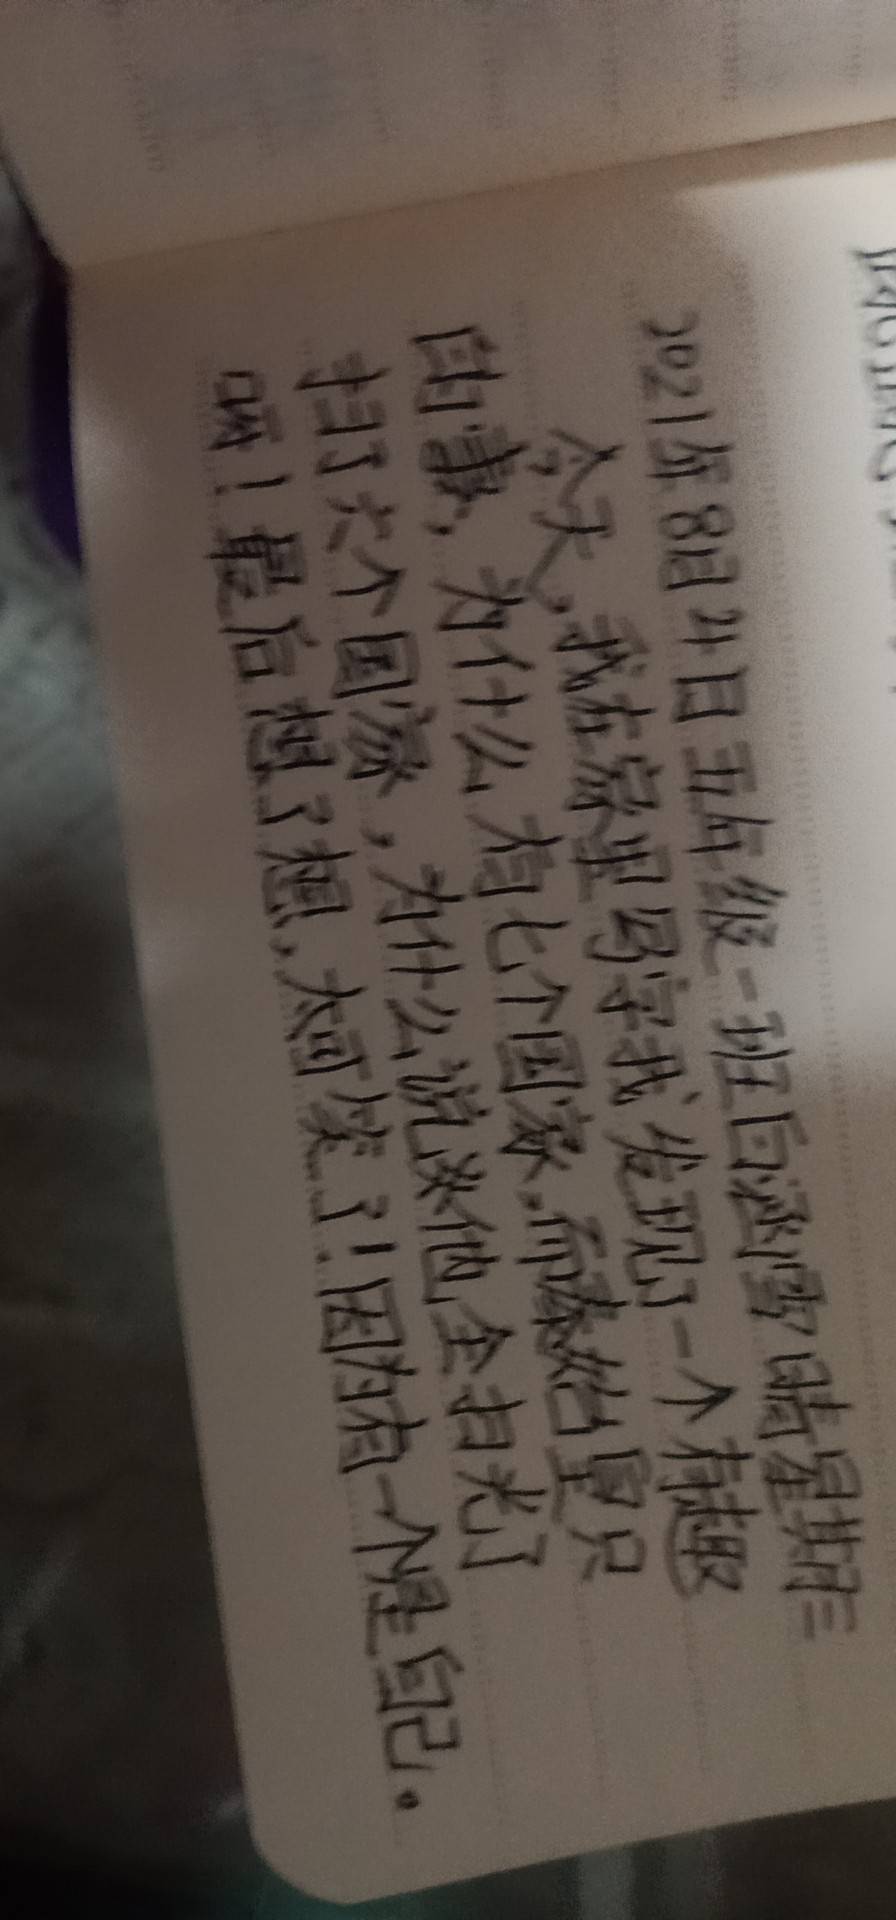 2021年8月4日 五年级一班白涵雪 晴 星期三
今天，我在家里写字我发现了一个有趣
的事，为什么有七个国家，而秦始皇只
扫了六个国家，为什么说柒他全扫光了
呢！最后想了想，太可笑了！因为有一个是自己。